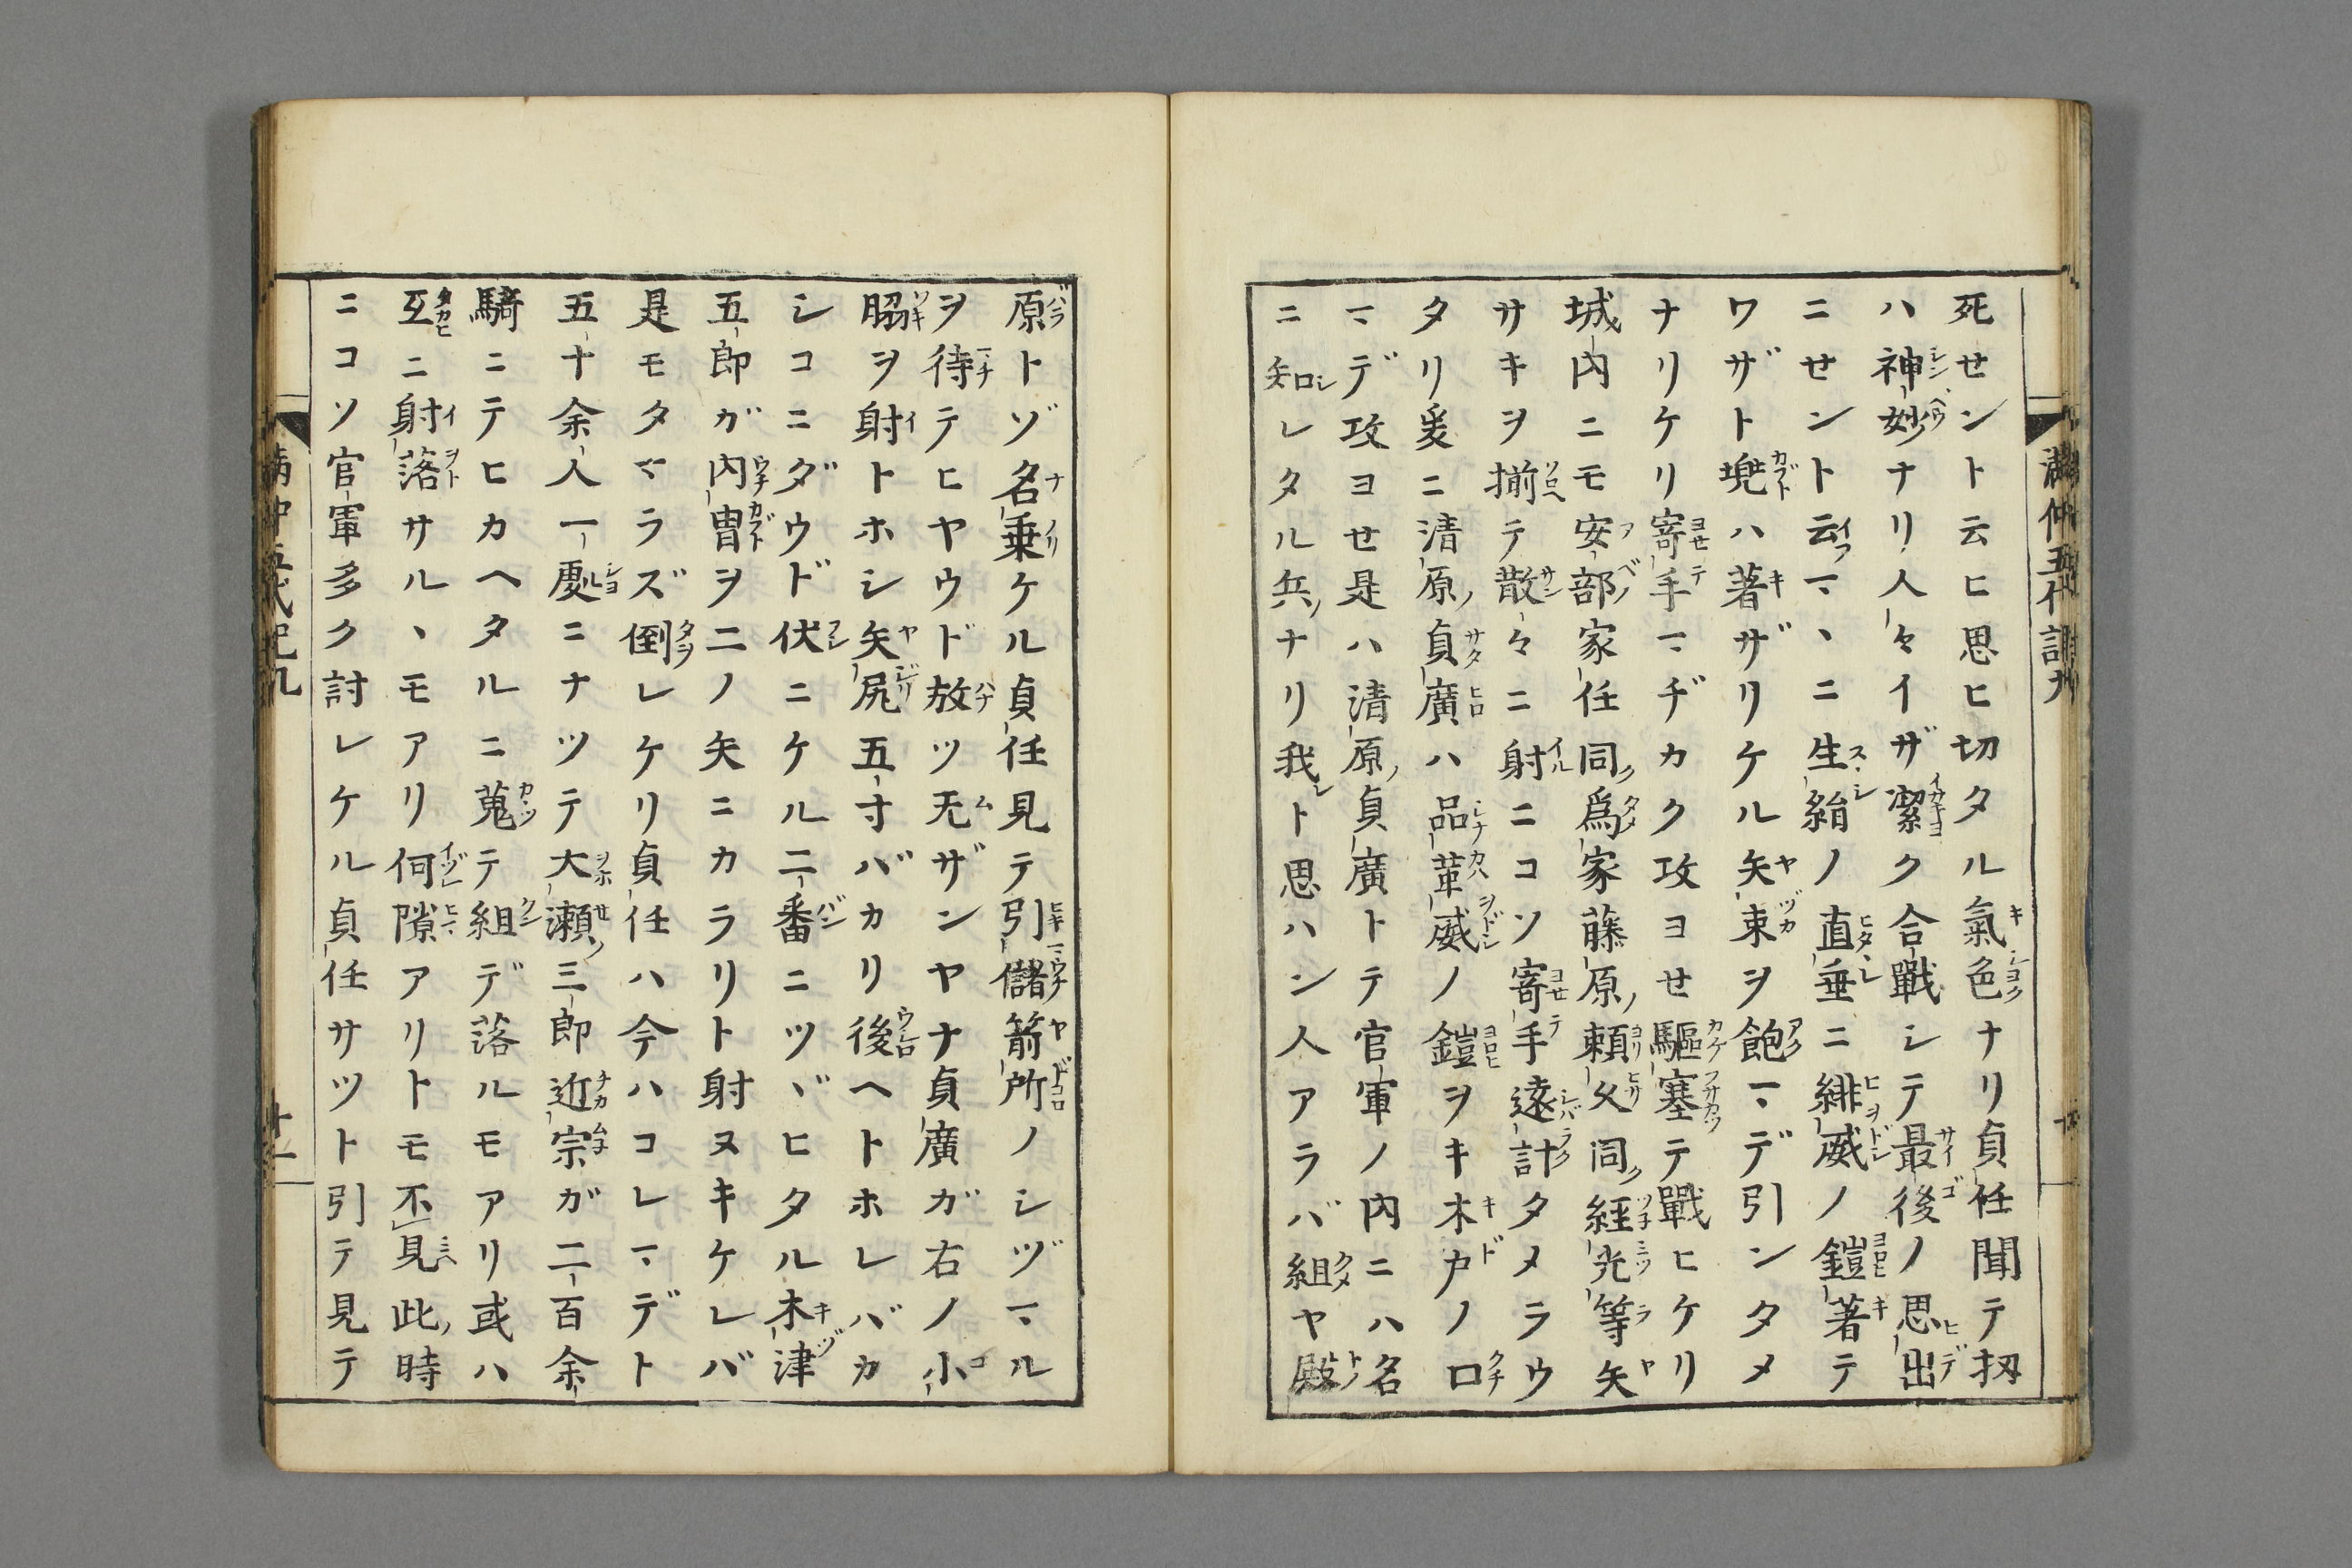 死せント云ヒ思ヒ切タル氣色ナリ貞任聞テ扨
ハ神妙ナリ人々イザ潔ク合戰シテ最後ノ思出
ニせント云マヽニ生絹ノ直垂ニ緋威ノ鎧著テ
ワザト兠ハ著ザリケル矢束ヲ飽マデ引ンタメ
ナリケリ寄手マヂカク攻ヨせ驅塞テ戰ヒケリ
城内ニモ安部家任同爲家藤原頼久同經光等矢
サキヲ揃テ散々ニ射ニコソ寄手遠計タメラウ
タリ爰ニ清原貞廣ハ品革威ノ鎧ヲキ木戸ノ口
マデ攻ヨせ是ハ清原貞廣トテ官軍ノ内ニハ名
ニ知レタル兵ナリ我ト思ハン人アラバ組ヤ殿
原トゾ名乗ケル貞任見テ引儲箭所ノシヅマル
ヲ待テヒヤウド放ツ无ザンヤナ貞廣ガ右ノ小
脇ヲ射トホシ矢尻五寸バカリ後ヘトホレバカ
シコニダウド伏ニケル二番ニツヾヒタル木津
五郎ガ内冑ヲ二ノ矢ニカラリト射ヌキケレバ
是モタマラズ倒レケリ貞任ハ今ハコレマデト
五十余人一処ニナツテ大瀬三郎近宗ガ二百余
騎ニテヒカヘタルニ蒐テ組デ落ルモアリ或ハ
互ニ射落サルヽモアリ何隙アリトモ不見此時
ニコソ官軍多ク討レケル貞任サツト引テ見テ
満仲五代記九